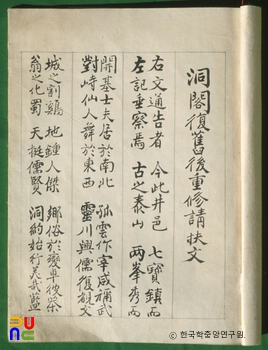 洞閣復舊後重修請扶文
右文通告者 今此井邑 七寶鎭而
左記垂察焉 古之泰山 兩峯秀而
開基士夫居於南北 孤雲作宰咸補武
對峙仙人舞於東西 靈川興儒復觀文
城之割鷄 地鍾人傑 鄕俗於變
翁之化蜀 天挺儒賢 洞約始行
ⓒ 한국학중앙연구원.